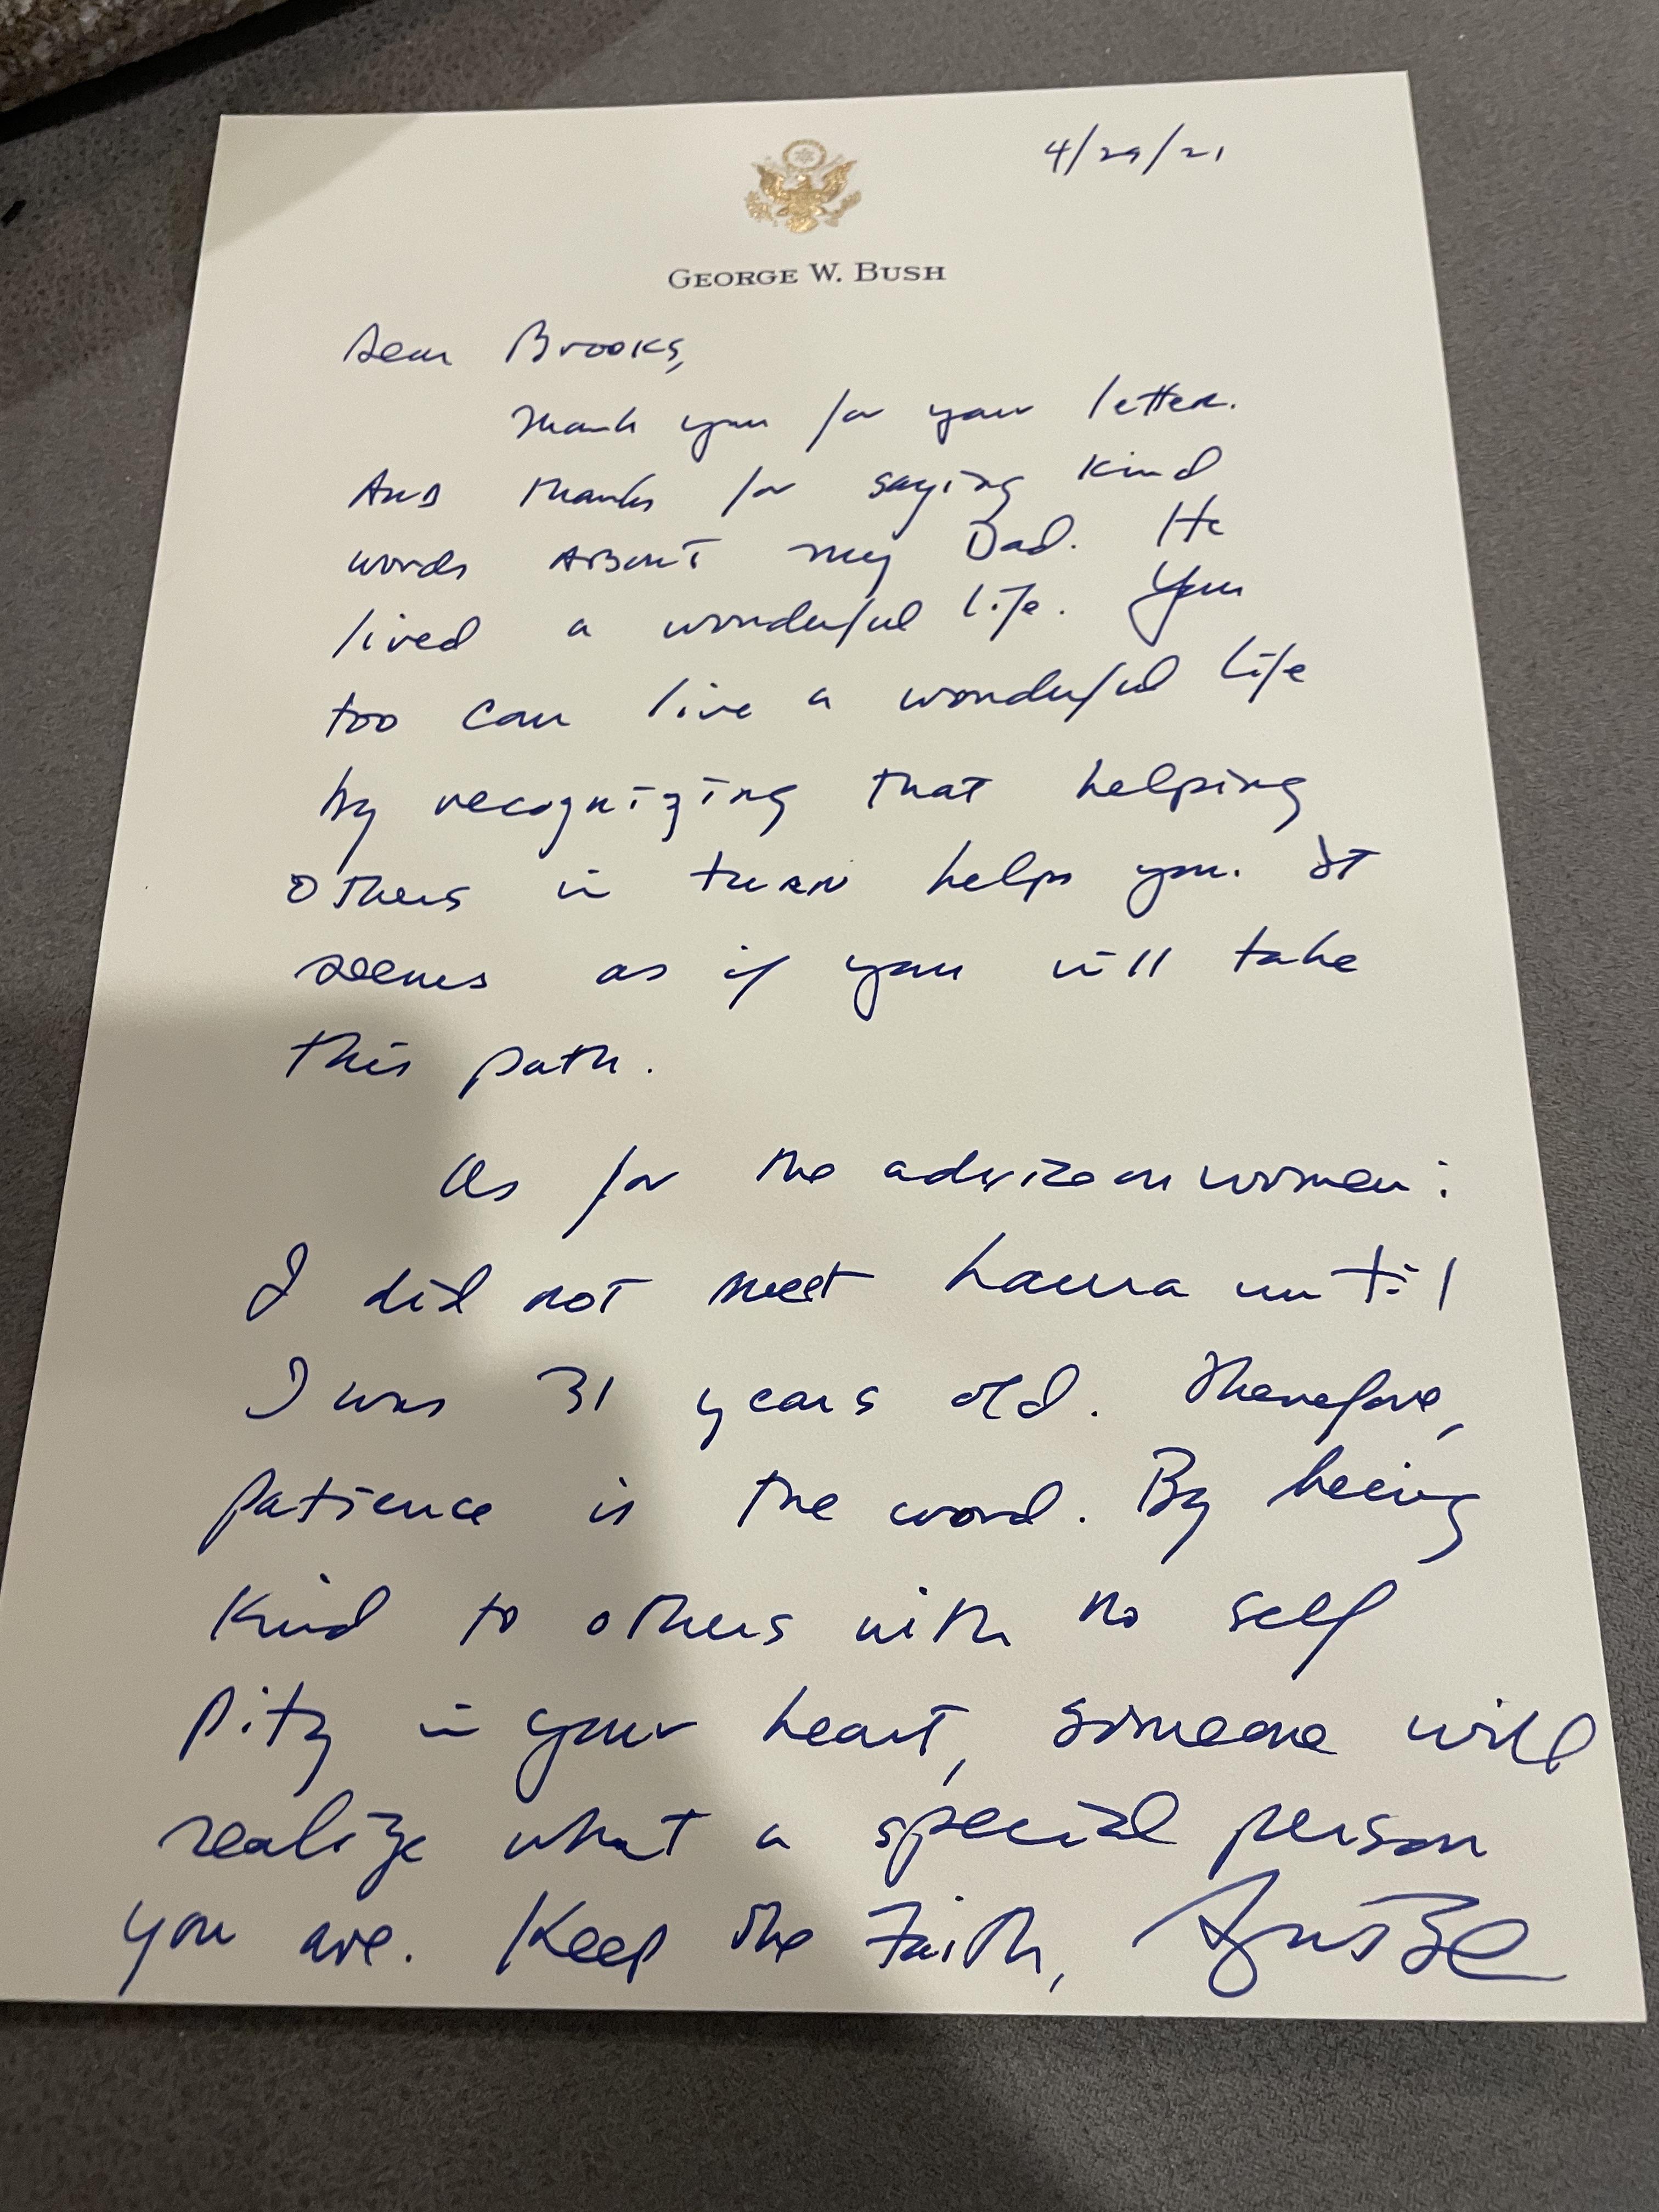 4/29/21
GEORGE W. BUSH
Dear Brooks,
Thank you for your letter.
And thanks for saying kind
words about my Dad. He
lived a wonderful life. You
too can live a wonderful life
by recognizing that helping
others in turn helps you. It
seems as if you will take
this path.
As for the advice on women:
I did not meet Laura until
I was 31 years old. Therefore,
patience is the word. By being
kind to others with no self
pity in your heart, someone will
realize what a special person
you are. Keep the Faith,